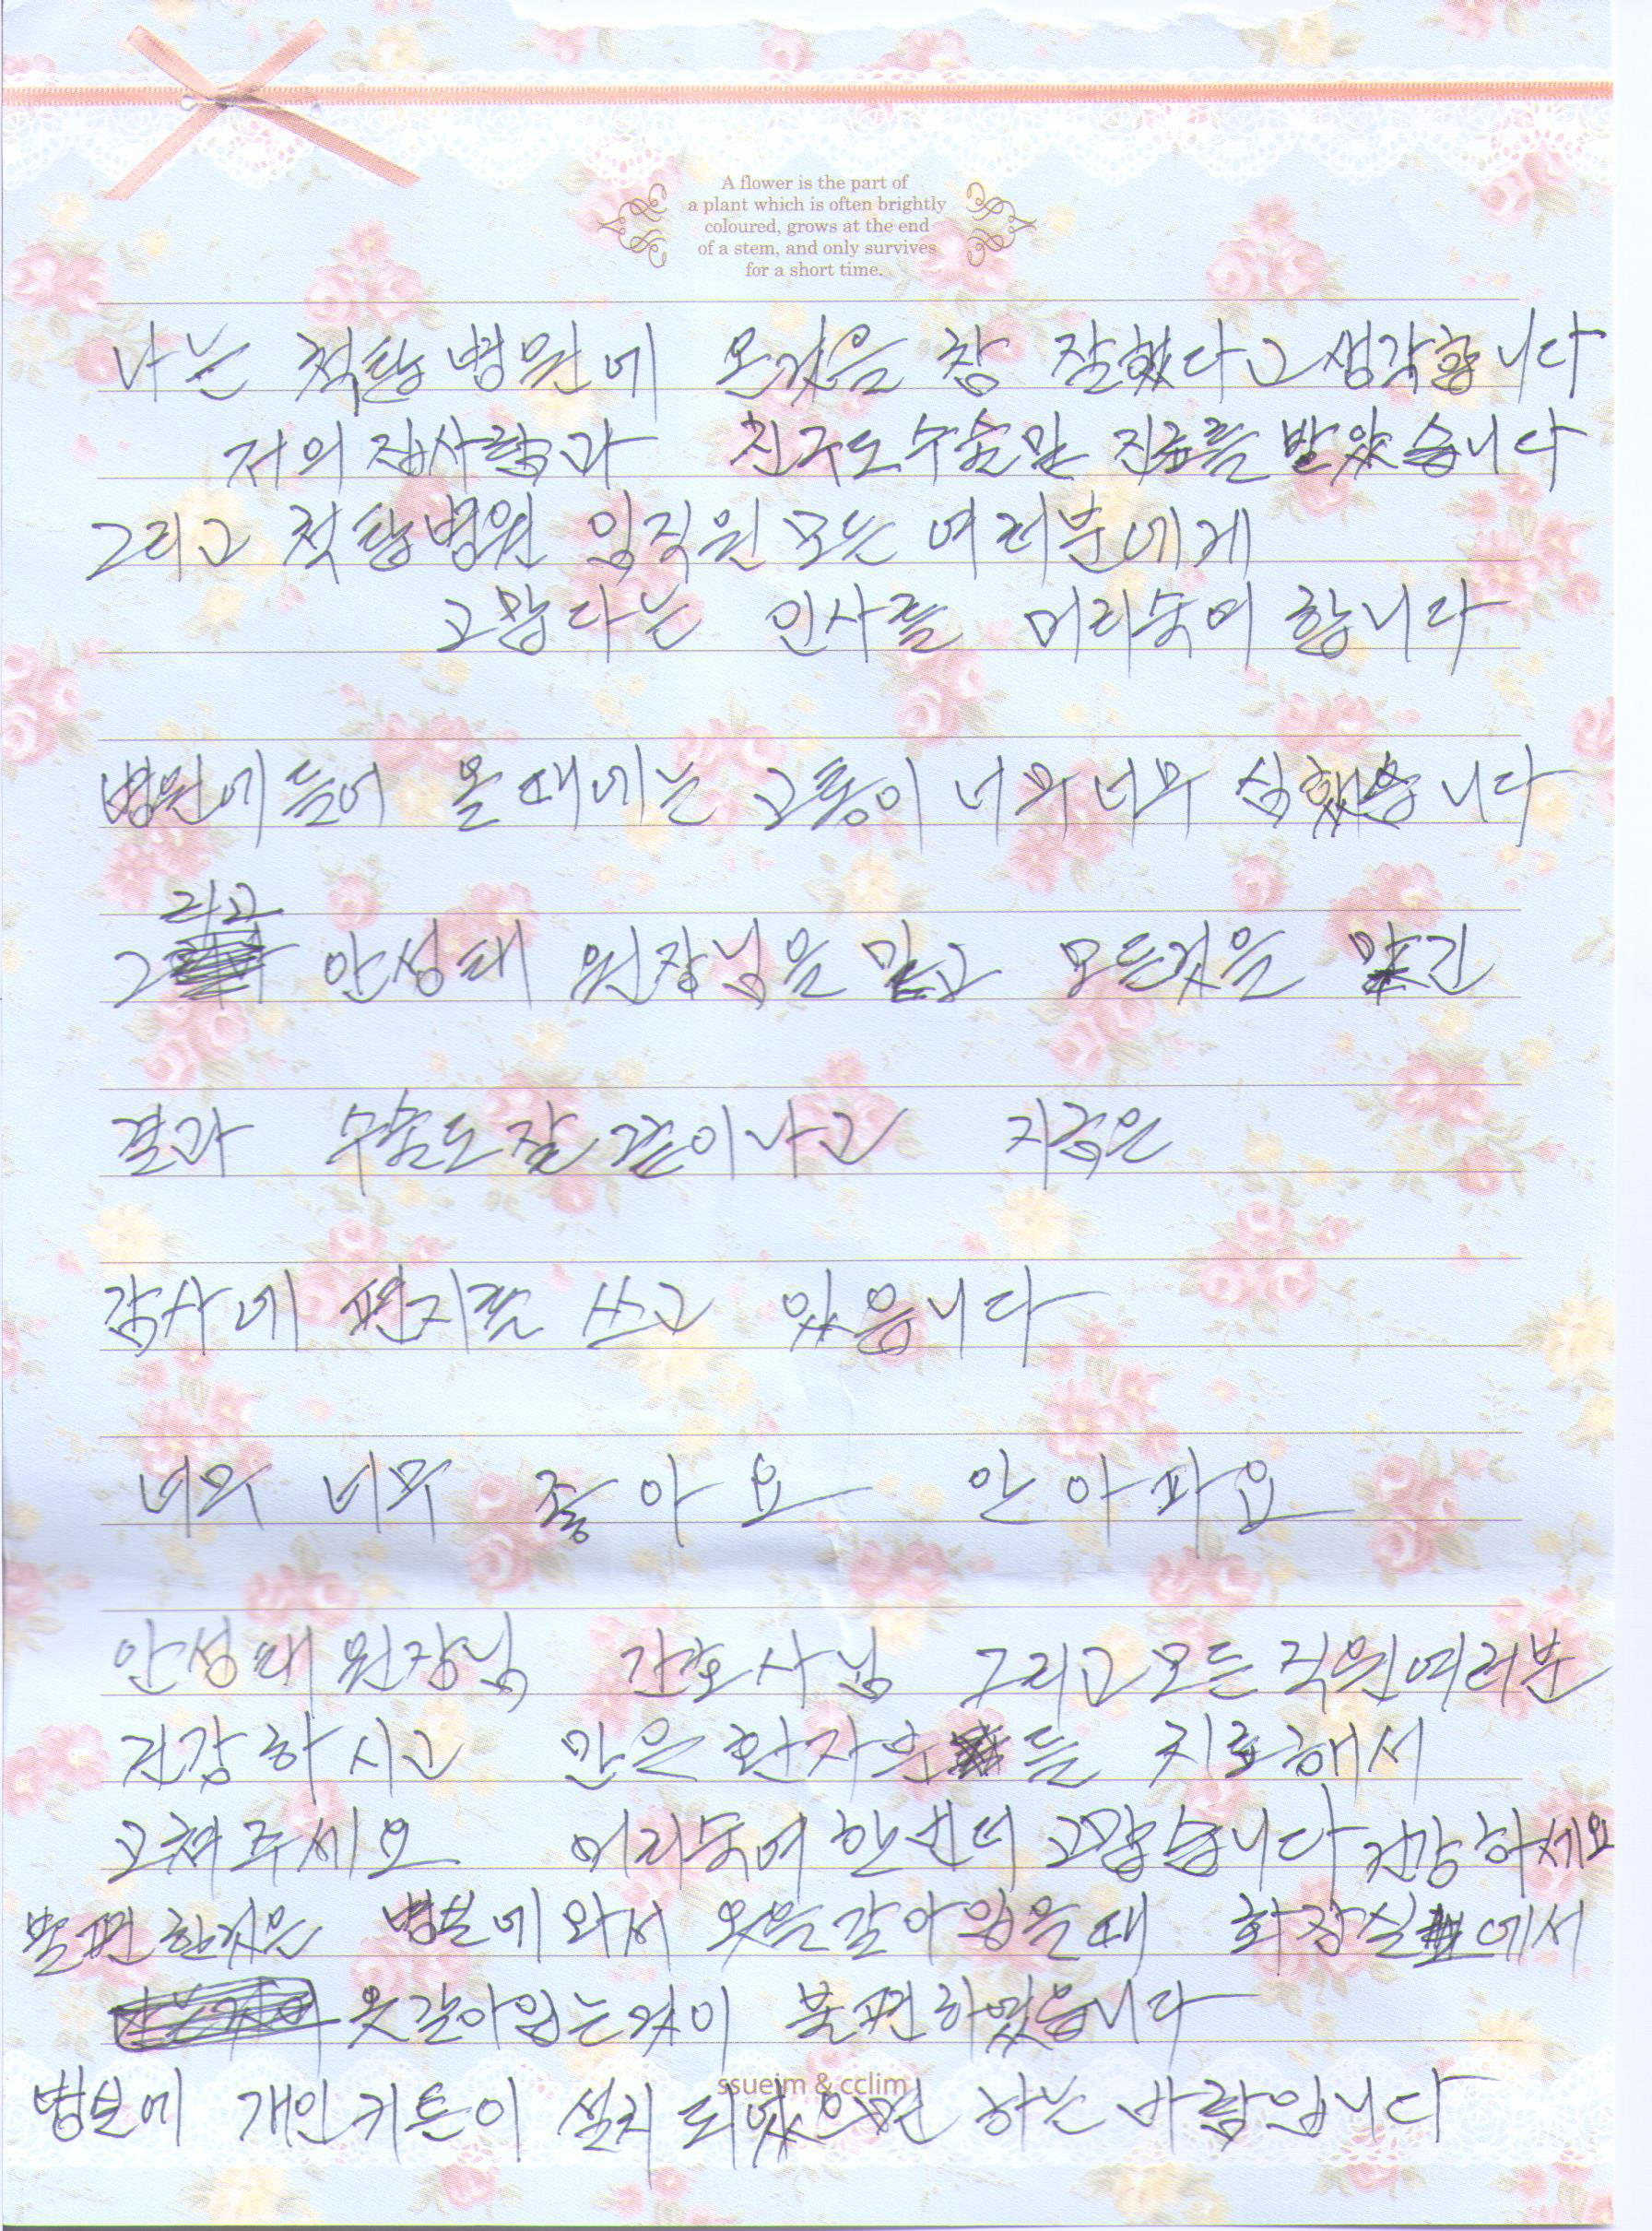 A flower is the part of
a plant which is often brightly
coloured, grows at the end
of a stem, and only survives
for a short time.
나는 척탑병원에 온것을 참 잘했다고 생각합니다
저의 집사람과 친구도 수술및 진료를 받았습니다
그리고 척탑병원 임직원 모는 여러분에게
고맙다는 인사를 머리숙여 함니다
병원에 들어 올때에는 고통이 너무너무 심했습니다
그리고 안성태 원장님을 믿고 모든것을 맡긴
결과 수술도 잘 끝이나고 지금은
감사에 편지를 쓰고 있읍니다
너무 너무 좋아요 안아파요
안성태 원장님 간호사님 그리고 모든 직원 여러분
건강하시고 만은 환자분들 치료해서
고쳐주세요 머리숙여 한번더 고맙습니다 건강하세요
불편한것은 병실에 와서 옷을갈아입을때 화장실에서
옷갈아입는것이 불편하였습니다
병실에 개인커튼이 설치 되었으면 하는 바람입니다
ssueim & cclim